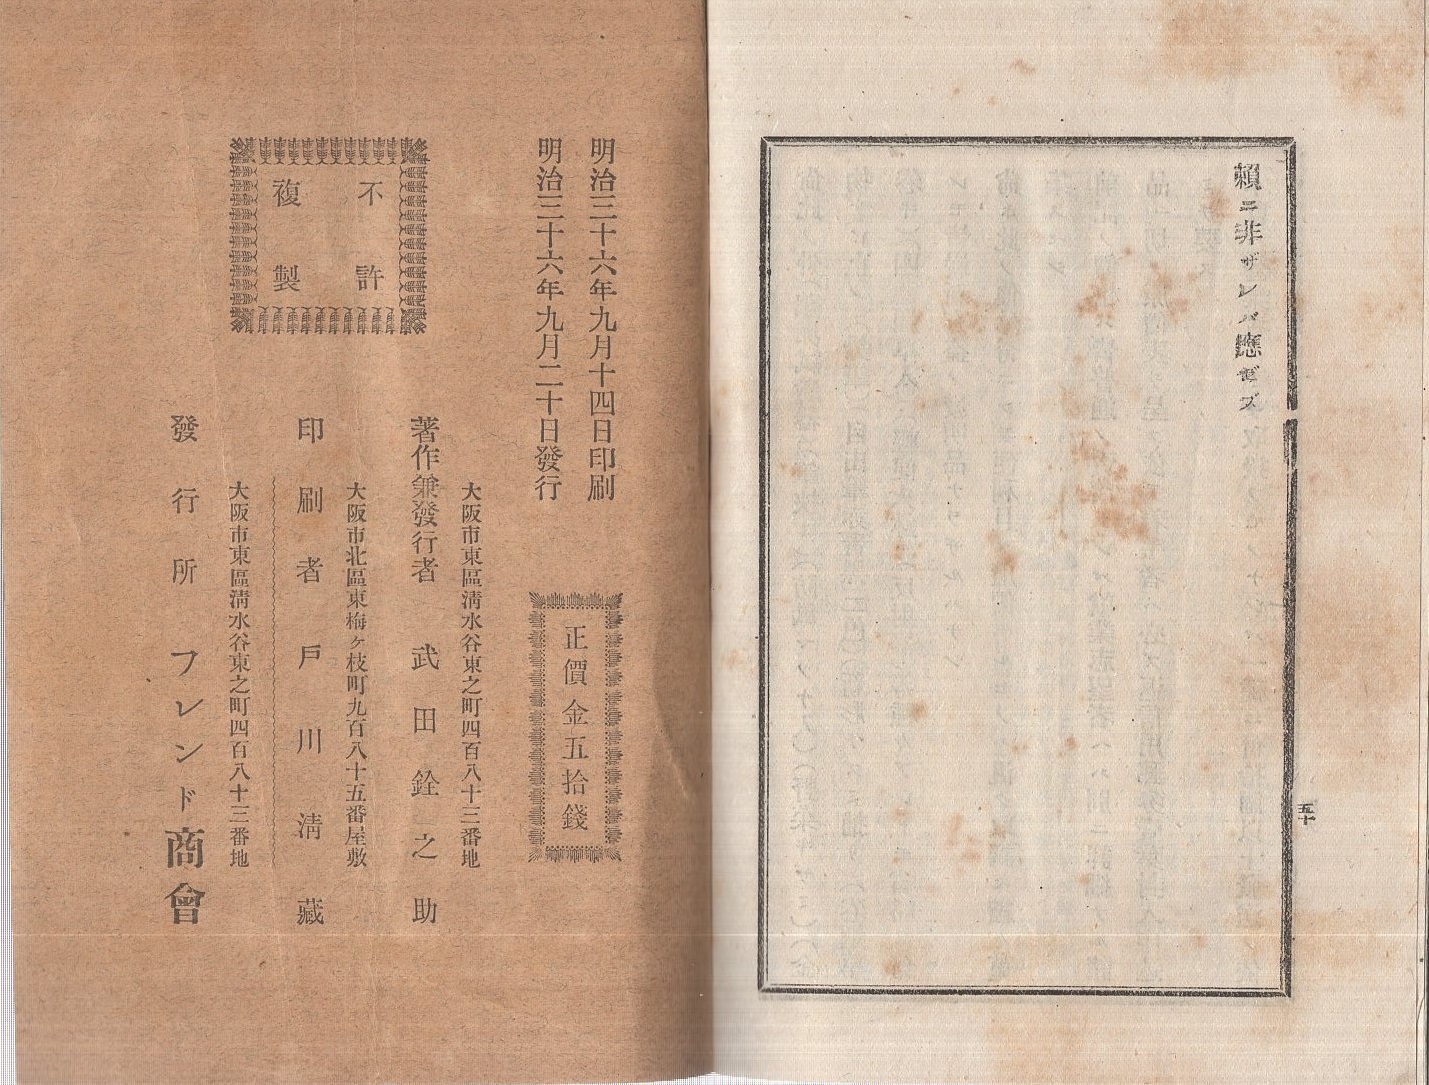 賴ニ非ザレバ應ゼズ
五十
明治三十六年九月十四日印刷
明治三十六年九月二十日發行
正價金五拾錢
不許
複製
大阪市東區淸水谷東之町四百八十三番地
著作兼發行者 武田銓之助
大阪市北區東梅ヶ枝町九百八十五番屋敷
印刷者 戸川淸藏
大阪市東區淸水谷東之町四百八十三番地
發行所 フレンド商會